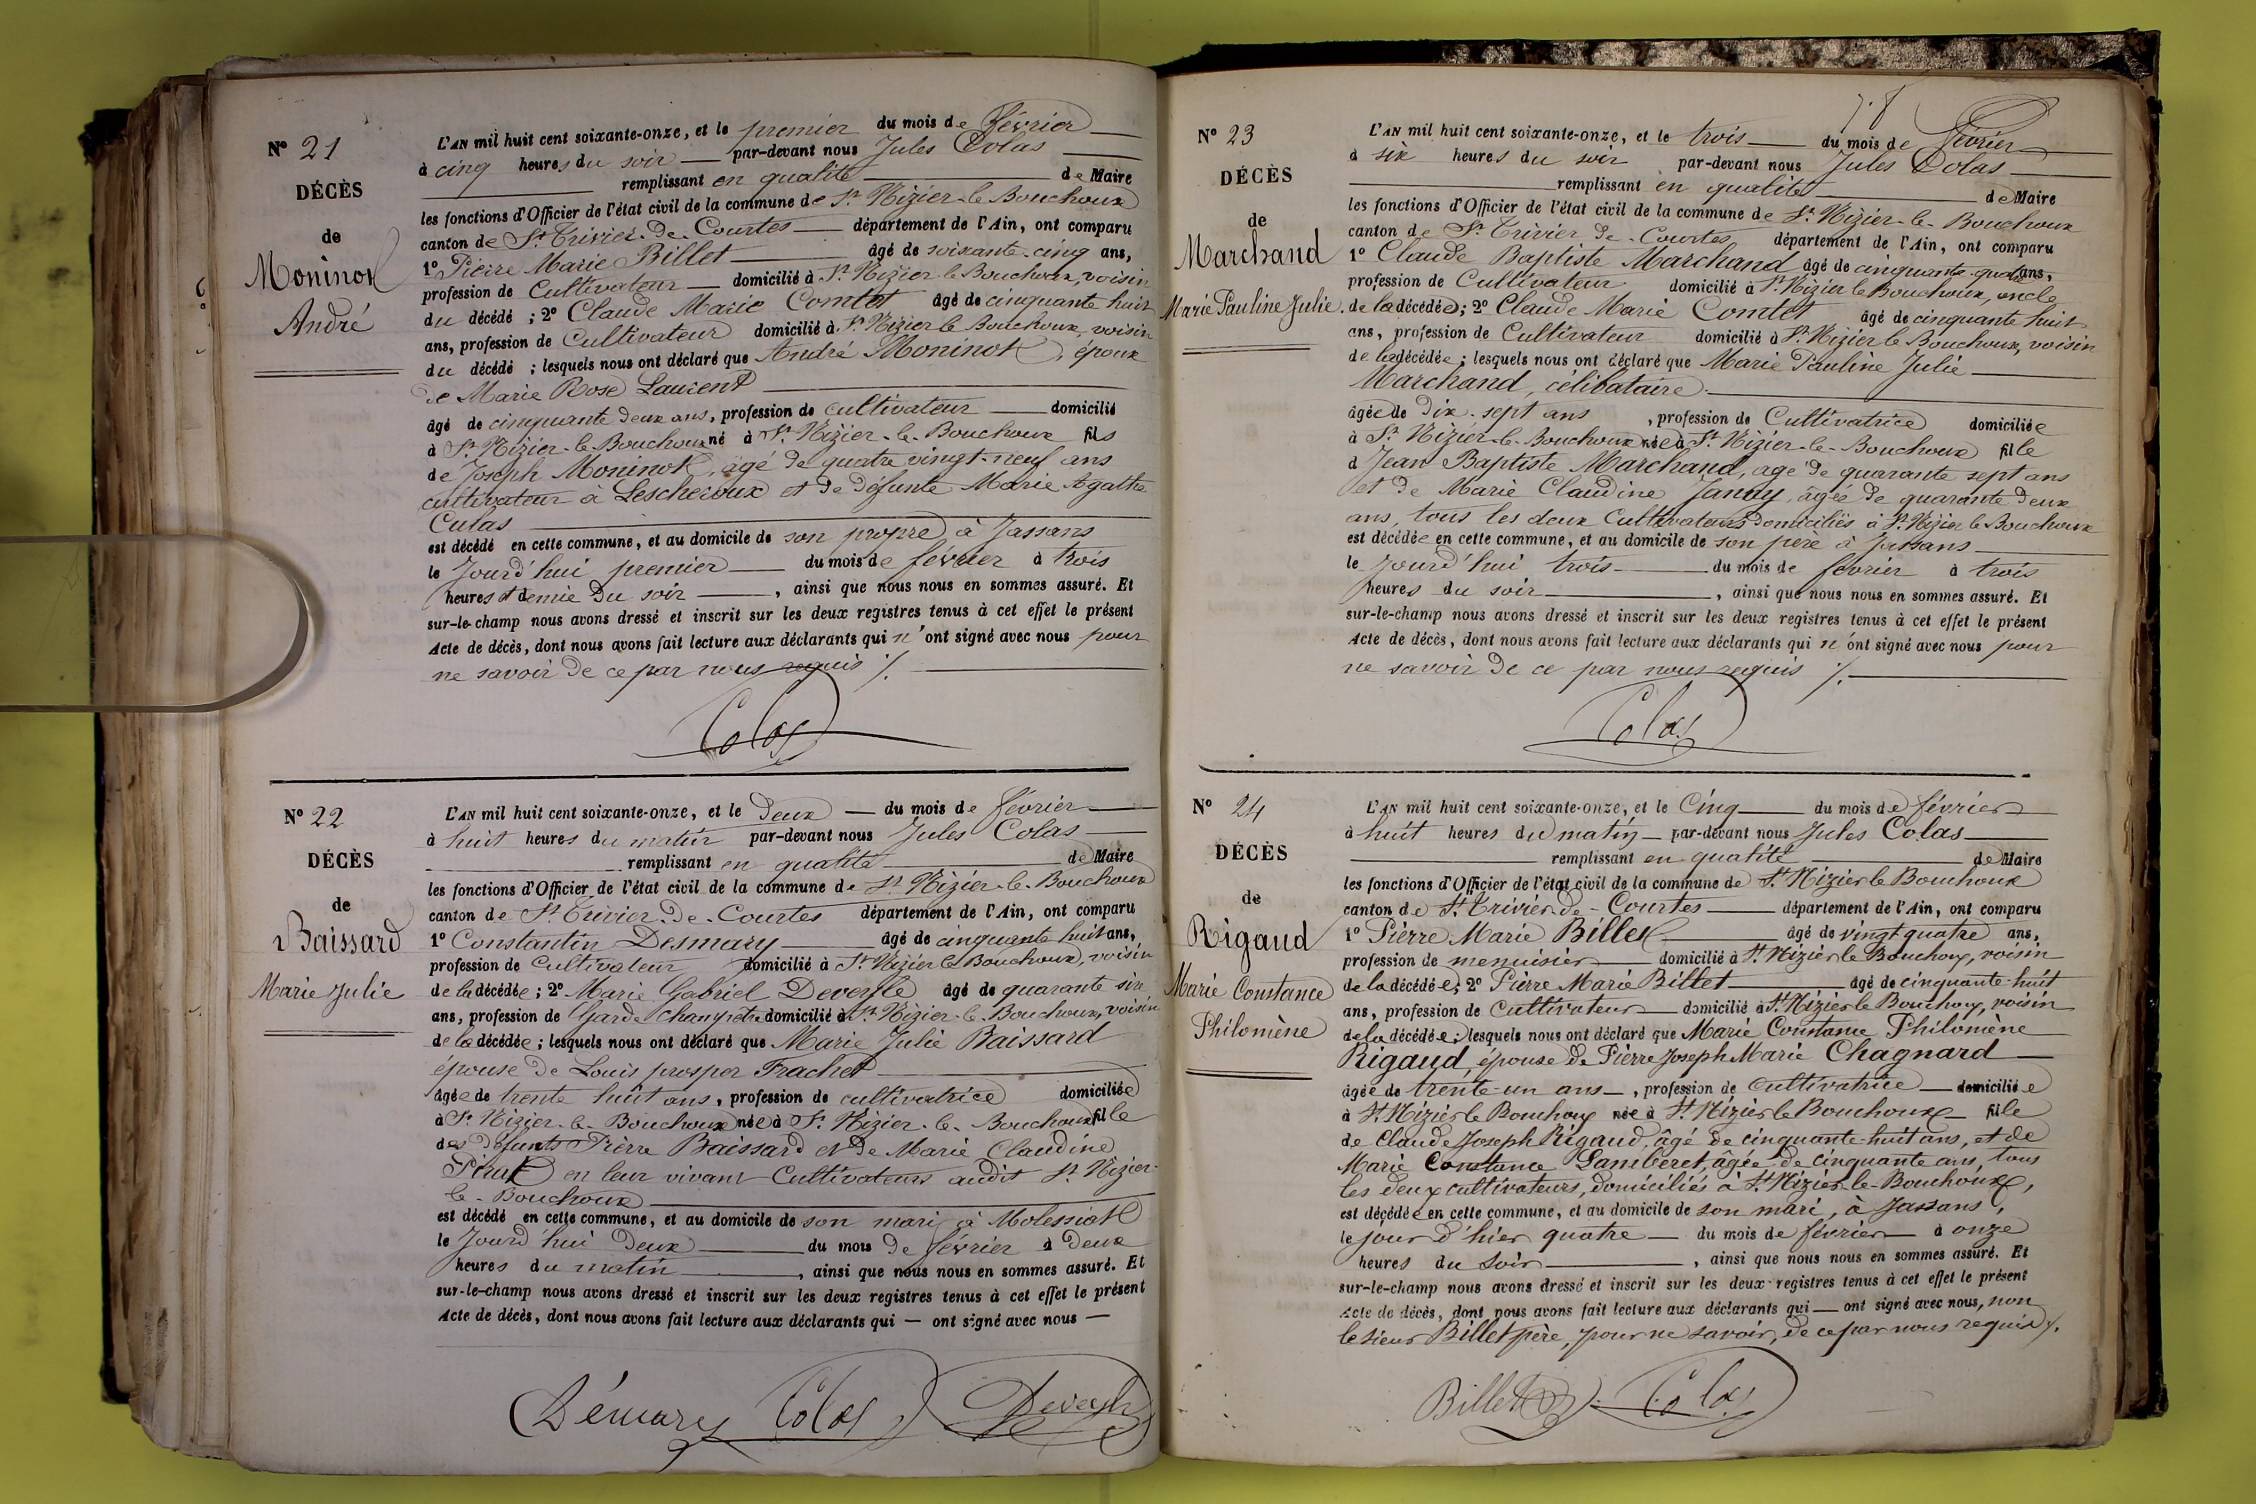 N° 21
DÉCÈS
de
Moninot
André
L'AN mil huit cent soixante-onze, et le premier du mois de février
à cinq heures du soir par-devant nous Jules Colas
remplissant en qualité de Maire
les fonctions d'Officier de l'état civil de la commune de St Nizier-le-Bouchoux
canton de St Trivier-de-Courtes département de l'Ain, ont comparu
1° Pierre Marie Billet âgé de soixante-cinq ans,
profession de Cultivateur domicilié à St Nizier-le-Bouchoux, voisin
du décédé ; 2° Claude Marie Comtet âgé de cinquante huit
ans, profession de Cultivateur domicilié à St Nizier le Bouchoux, voisin
du décédé ; lesquels nous ont déclaré que André Moninot, époux
de Marie Rose Laurent
âgé de cinquante deux ans, profession de cultivateur domicilié
à St Nizier-le-Bouchoux né à St Nizier-le-Bouchoux fils
de Joseph Moninot, âgé de quatre vingt-neuf ans
cultivateur à Lescheroux et de défunte Marie Agathe
Culas
est décédé en cette commune, et au domicile de son propre à Jassans
le Jourd'hui premier du mois de février à trois
heures et demie du soir, ainsi que nous nous en sommes assuré. Et
sur-le-champ nous avons dressé et inscrit sur les deux registres tenus à cet effet le présent
Acte de décès, dont nous avons fait lecture aux déclarants qui n'ont signé avec nous pour
ne savoir de ce par nous requis ./.
Colas
N° 22
DÉCÈS
de
Baissard
Marie Julie
L'AN mil huit cent soixante-onze, et le Deux du mois de février
à huit heures du matin par-devant nous Jules Colas
remplissant en qualité de Maire
les fonctions d'Officier de l'état civil de la commune de St Nizier-le-Bouchoux
canton de St Trivier-de-Courtes département de l'Ain, ont comparu
1° Constantin Desmary âgé de cinquante huit ans,
profession de Cultivateur domicilié à St Nizier le Bouchoux, voisin
de la décédée ; 2° Marie Gabriel Deveyle âgé de quarante six
ans, profession de Garde champêtre domicilié à St Nizier-le-Bouchoux, voisin
de la décédée ; lesquels nous ont déclaré que Marie Julie Baissard
épouse de Louis prosper Frachet
âgée de trente huit ans, profession de cultivatrice domiciliée
à St Nizier-le-Bouchoux née à St Nizier-le-Bouchoux fille
des défunts Pierre Baissard et de Marie Claudine
en leur vivant Cultivateurs audit St Nizier-
le-Bouchoux
est décédé en cette commune, et au domicile de son mari à Molessiat
le Jourd'hui Deux du mois de février à Deux
heures du matin, ainsi que nous nous en sommes assuré. Et
sur-le-champ nous avons dressé et inscrit sur les deux registres tenus à cet effet le présent
Acte de décès, dont nous avons fait lecture aux déclarants qui — ont signé avec nous —
Démary Colas Deveyle
N° 23
DÉCÈS
de
Marchand
Marie Pauline Julie.
L'AN mil huit cent soixante-onze, et le trois du mois de février
à six heures du soir par-devant nous Jules Colas
remplissant en qualité de Maire
les fonctions d'Officier de l'état civil de la commune de St Nizier-le-Bouchoux
canton de St Trivier de-Courtes département de l'Ain, ont comparu
1° Claude Baptiste Marchand âgé de cinquante-quatre ans,
profession de Cultivateur domicilié à St Nizier le Bouchoux, oncle
de la décédée ; 2° Claude Marie Comtet âgé de cinquante huit
ans, profession de Cultivateur domicilié à St Nizier le Bouchoux, voisin
de la décédée ; lesquels nous ont déclaré que Marie Pauline Julie
Marchand, célibataire
âgée de Dix-sept ans, profession de Cultivatrice domiciliée
à St Nizier-le-Bouchoux née à St Nizier-le-Bouchoux fille
d Jean Baptiste Marchand, agé de quarante sept ans
et de Marie Claudine Janay, âgée de quarante deux
ans, tous les deux Cultivateurs domiciliés à St Nizier le Bouchoux
est décédée en cette commune, et au domicile de son père à Jassans
le Jourd'hui trois du mois de février à trois
heures du soir, ainsi que nous nous en sommes assuré. Et
sur-le-champ nous avons dressé et inscrit sur les deux registres tenus à cet effet le présent
Acte de décès, dont nous avons fait lecture aux déclarants qui n'ont signé avec nous pour
ne savoir de ce par nous requis ./.
Colas
N° 24
DÉCÈS
de
Rigaud
Marie Constance
Philomène
L'AN mil huit cent soixante-onze, et le Cinq du mois de février
à huit heures du matin par-devant nous Jules Colas
remplissant en qualité de Maire
les fonctions d'Officier de l'état civil de la commune de St Nizier le Bouchoux
canton de St Trivier-de-Courtes département de l'Ain, ont comparu
1° Pierre Marie Billet âgé de vingt quatre ans,
profession de menuisier domicilié à St Nizier le Bouchoux, voisin
de la décédée ; 2° Pierre Marie Billet âgé de cinquante-huit
ans, profession de cultivateur domicilié à St Nizier le Bouchoux, voisin
de la décédée ; lesquels nous ont déclaré que Marie Constance Philomène
Rigaud, épouse de Pierre Joseph Marie Chagnard
âgée de trente-un ans, profession de cultivatrice domiciliée
à St Nizier le Bouchoux née à St Nizier le Bouchoux fille
de Claude Joseph Rigaud, âgé de cinquante-huit ans, et de
Marie Constance Lamberet, âgée de cinquante ans, tous
les deux cultivateurs, domiciliés à St Nizier-le-Bouchoux,
est décédée en cette commune, et au domicile de son mari, à Jassans,
le jour d'hier quatre du mois de février à onze
heures du soir, ainsi que nous nous en sommes assuré. Et
sur-le-champ nous avons dressé et inscrit sur les deux registres tenus à cet effet le présent
Acte de décès, dont nous avons fait lecture aux déclarants qui — ont signé avec nous, non
le sieur Billet père, pour ne savoir, de ce par nous requis ./.
Billet Colas